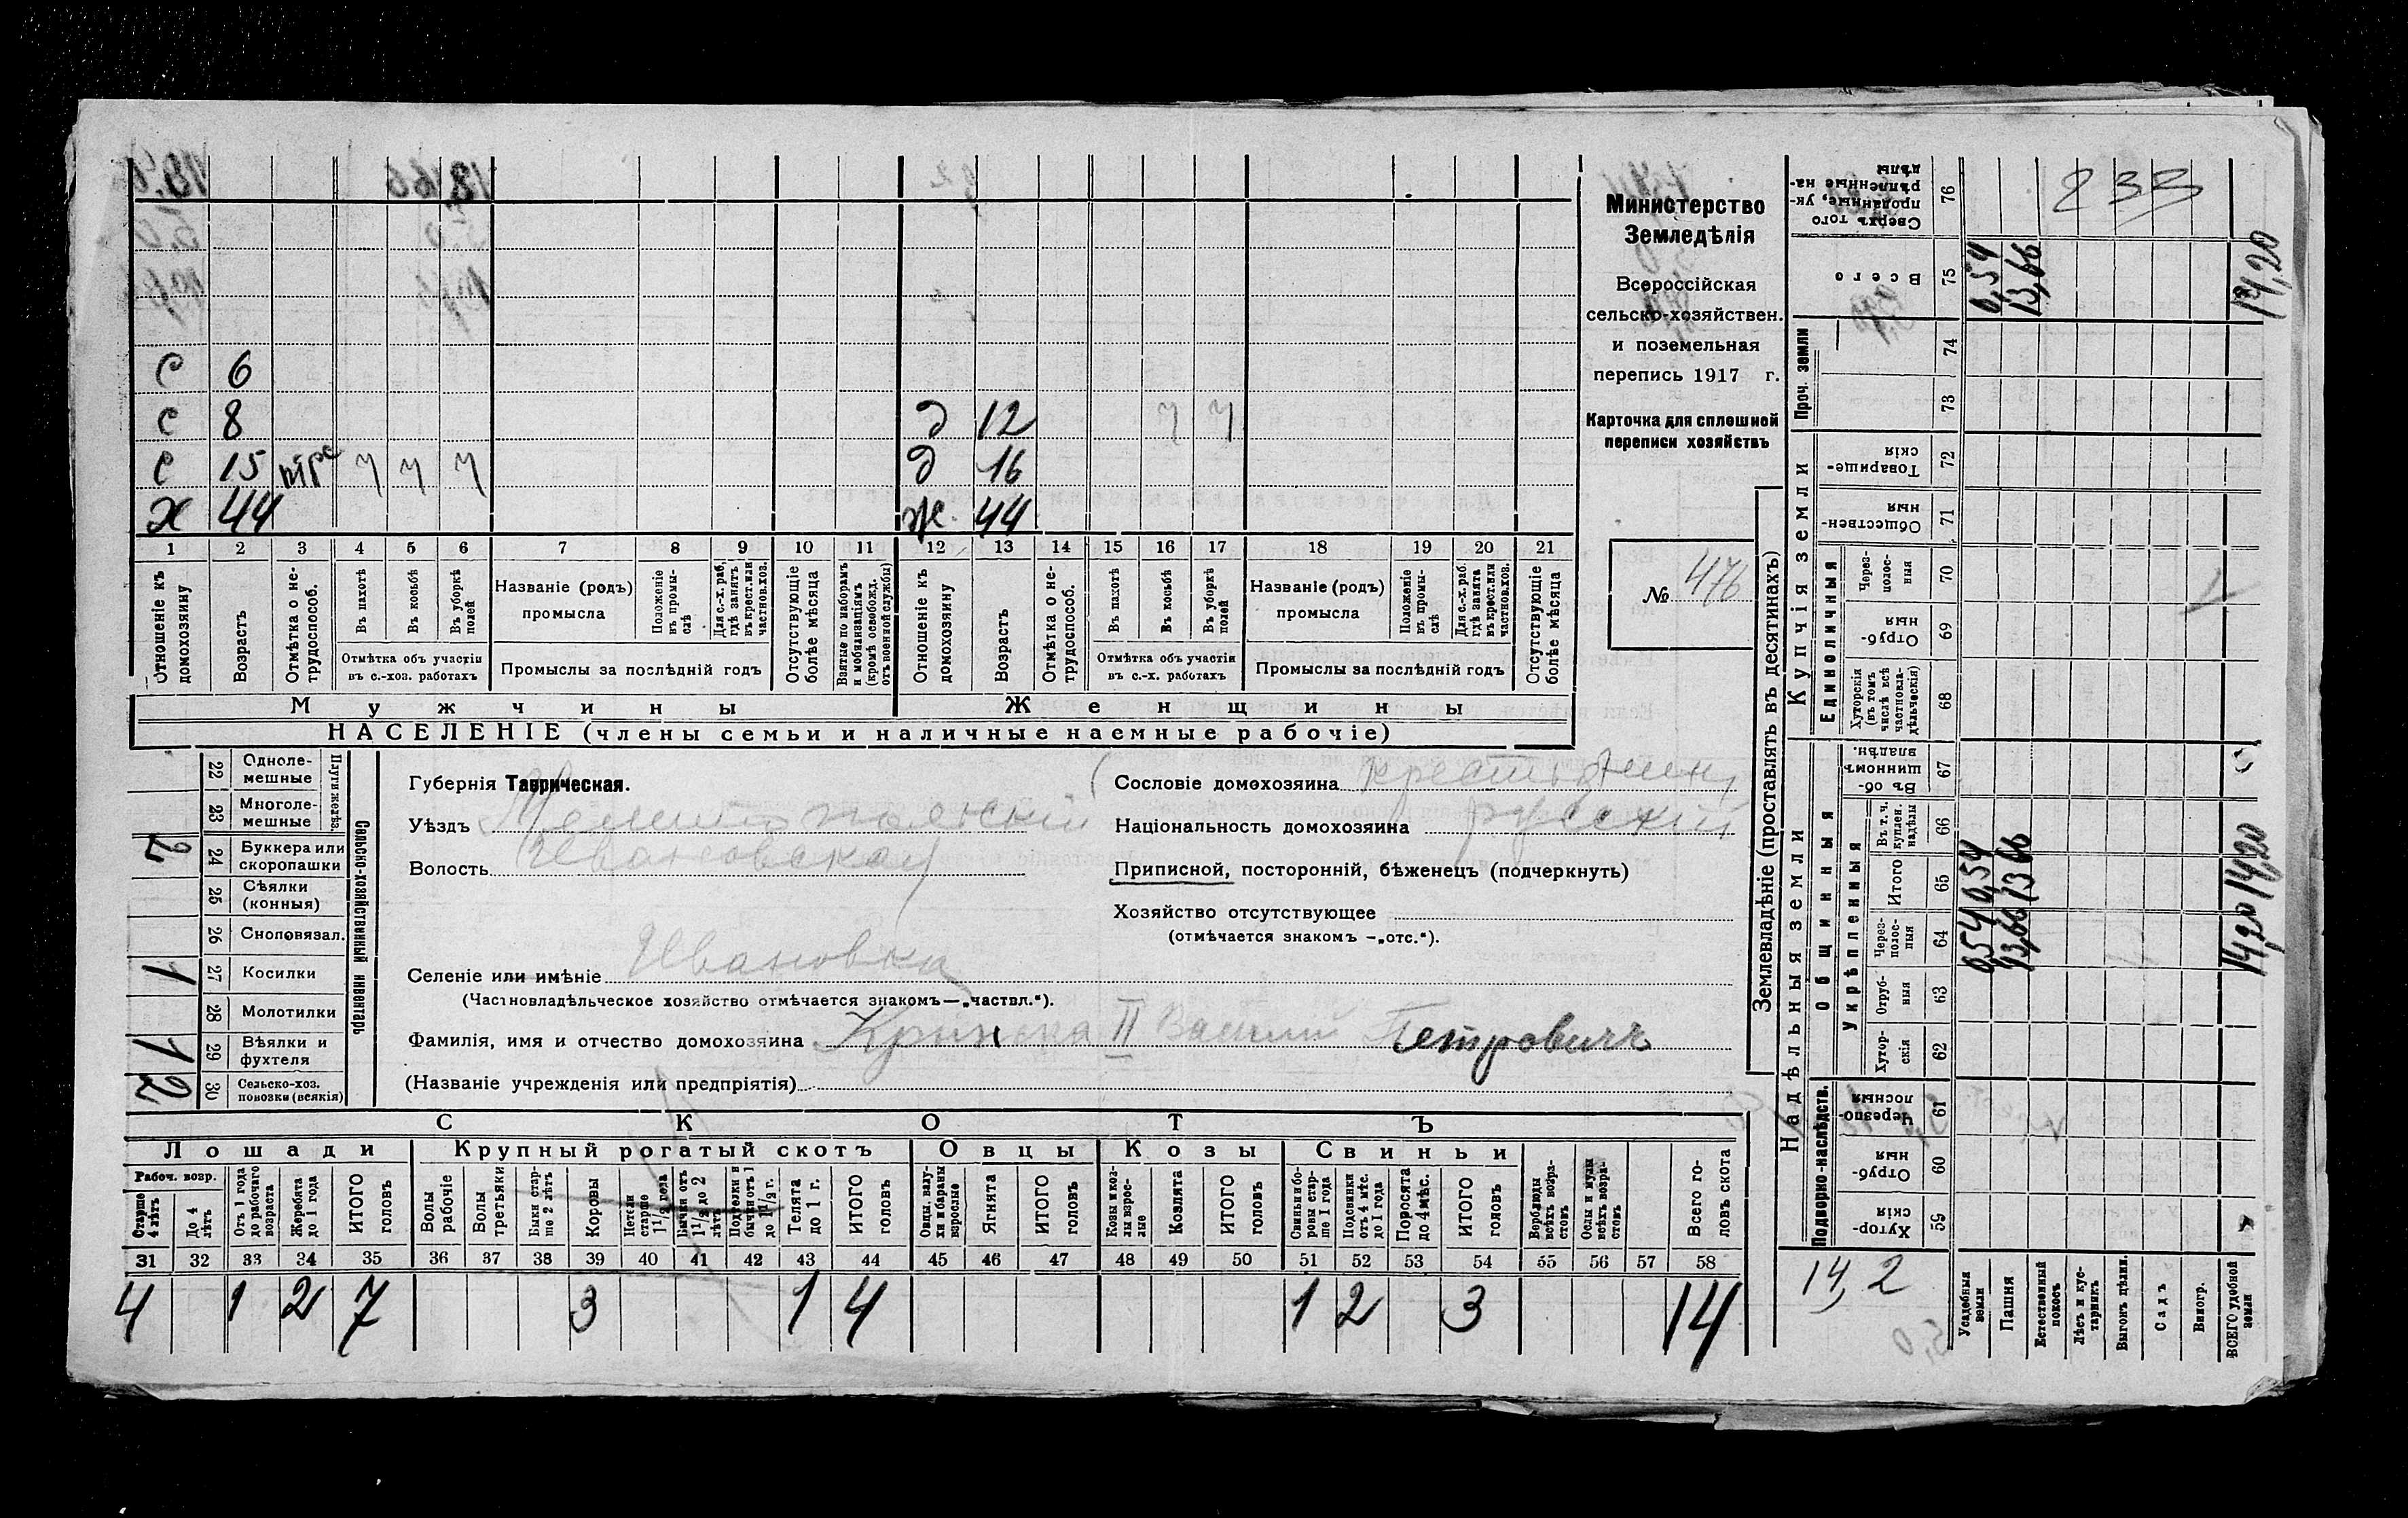 с 6
с 8 д 12 ч ч
с 15 ч ч ч д 16
х 44 ж. 44
1 2 3 4 5 6 7 8 9 10 11 12 13 14 15 16 17 18 19 20 21
Отношеніе къ домохозяину
Возрастъ
Отмѣтка о не-трудоспособ.
Въ пахотѣ
Въ косьбѣ
Въ уборкѣ полей
Отмѣтка объ участіи въ с.-хоз. работахъ
Названіе (родъ) промысла
Положеніе въ промы-слѣ
Для с.-х. раб. гдѣ занятъ въ крест. или частнов. хоз.
Промыслы за послѣдній годъ
Отсутствующіе болѣе мѣсяца
Взятые по наборамъ и мобилизаціямъ (кромѣ освобожд. отъ военной службы)
Отношеніе къ домохозяину
Возрастъ
Отмѣтка о не-трудоспособ.
Въ пахотѣ
Въ косьбѣ
Въ уборкѣ полей
Отмѣтка объ участіи въ с.-х. работахъ
Названіе (родъ) промысла
Положеніе въ промы-слѣ
Для с.-х. раб. гдѣ занята въ крест. или частнов. хоз.
Промыслы за послѣдній годъ
Отсутствующіе болѣе мѣсяца
Мужчины Женщины
НАСЕЛЕНІЕ (члены семьи и наличные наемные рабочіе)
Министерство
Земледѣлія
Всероссійская
сельско-хозяйствен.
и поземельная
перепись 1917 г.
Карточка для сплошной
переписи хозяйствъ
№ 476
Сельско-хозяйственный инвентарь
Плуги желѣз.
22 Одноле-мешные
23 Многоле-мешные
24 Буккера или скоропашки 2
25 Сѣялки (конныя)
26 Сноповязал.
27 Косилки 1
28 Молотилки
29 Вѣялки и фухтеля 1
30 Сельско-хоз. повозки (всякія) 2
Губернія Таврическая.
Уѣздъ Мелитопольскій
Волость Ивановская
Селеніе или имѣніе Ивановка
(Частновладѣльческое хозяйство отмѣчается знакомъ—„частвл.“).
Фамилія, имя и отчество домохозяина II Василий Петровичъ
(Названіе учрежденія или предпріятія)
Сословіе домохозяина крестьянин
Національность домохозяина русскій
Приписной, посторонній, бѣженецъ (подчеркнуть)
Хозяйство отсутствующее
(отмѣчается знакомъ —„отс.“).
СКОТЪ
Лошади Крупный рогатый скотъ Овцы Козы Свиньи
Рабоч. возр.
Старше 4 лѣтъ
До 4 лѣтъ
Отъ 1 года до рабочаго возраста
Жеребята до 1 года
ИТОГО головъ
Волы рабочіе
Волы третьяки
Быки стар-ше 2 лѣтъ
Коровы
Нетели старше 1 1/2 года
Бычки отъ 1 1/2 до 2 лѣтъ
Подтелки и бычки отъ 1 до 1 1/2 г.
Телята до 1 г.
ИТОГО головъ
Овцы, валу-хи и бараны взрослые
Ягнята
ИТОГО головъ
Козы и коз-лы взрос-лые
Козлята
ИТОГО головъ
Свиньи и бо-ровы стар-ше 1 года
Подсвинки отъ 4 мѣс. до 1 года
Поросята до 4 мѣс.
ИТОГО головъ
Верблюды всѣхъ возра-стовъ
Ослы и мулы всѣхъ возра-стовъ
Всего го-ловъ скота
31 32 33 34 35 36 37 38 39 40 41 42 43 44 45 46 47 48 49 50 51 52 53 54 55 56 57 58
4 1 2 7 3 1 4 1 2 3 14
Землевладѣніе (проставлять въ десятинахъ)
Надѣльныя земли
Купчія земли
Проч. земли
Подворно-наслѣдств.
Общинныя
Укрѣпленныя
Единоличныя
Сверхъ того проданные, ук-рѣпленные на-дѣлы 76 233
Всего 75 0,54 13,66 14,20
74
73
Товарище-скія 72
Обществен-ныя 71
Через-полос-ныя 70
Отруб-ныя 69
Хуторскія (въ томъ числѣ всѣ частновла-дѣльческія) 68
Въ об-щинномъ владѣн. 67
Въ т. ч. куплен. надѣлы 66
Итого 65 0,54 13,66 14,20
Через-полос-ныя 64 0,54 13,66 14,20
Отруб-ныя 63
Хутор-скія 62
Черезпо-лосныя 61
Отруб-ныя 60
Хутор-скія 59
14,2
Усадебныя земли
Пашня
Естественный покосъ
Лѣсъ и кус-тарникъ
Выгонъ цѣлин.
Садъ
Виногр.
ВСЕГО удобной земли